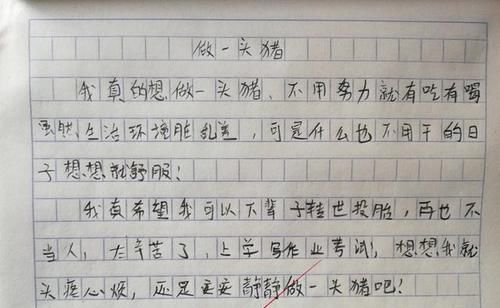 做一头猪
我真的想做一头猪、不用努力就有吃有喝
虽然生活环境脏乱差，可是什么也不用干的日
子想想就舒服！
我真希望我可以下辈子转世投胎，再也不
当人，太辛苦了，上学写作业考试！想想我就
头疼心烦，还是安安静静做一头猪吧！